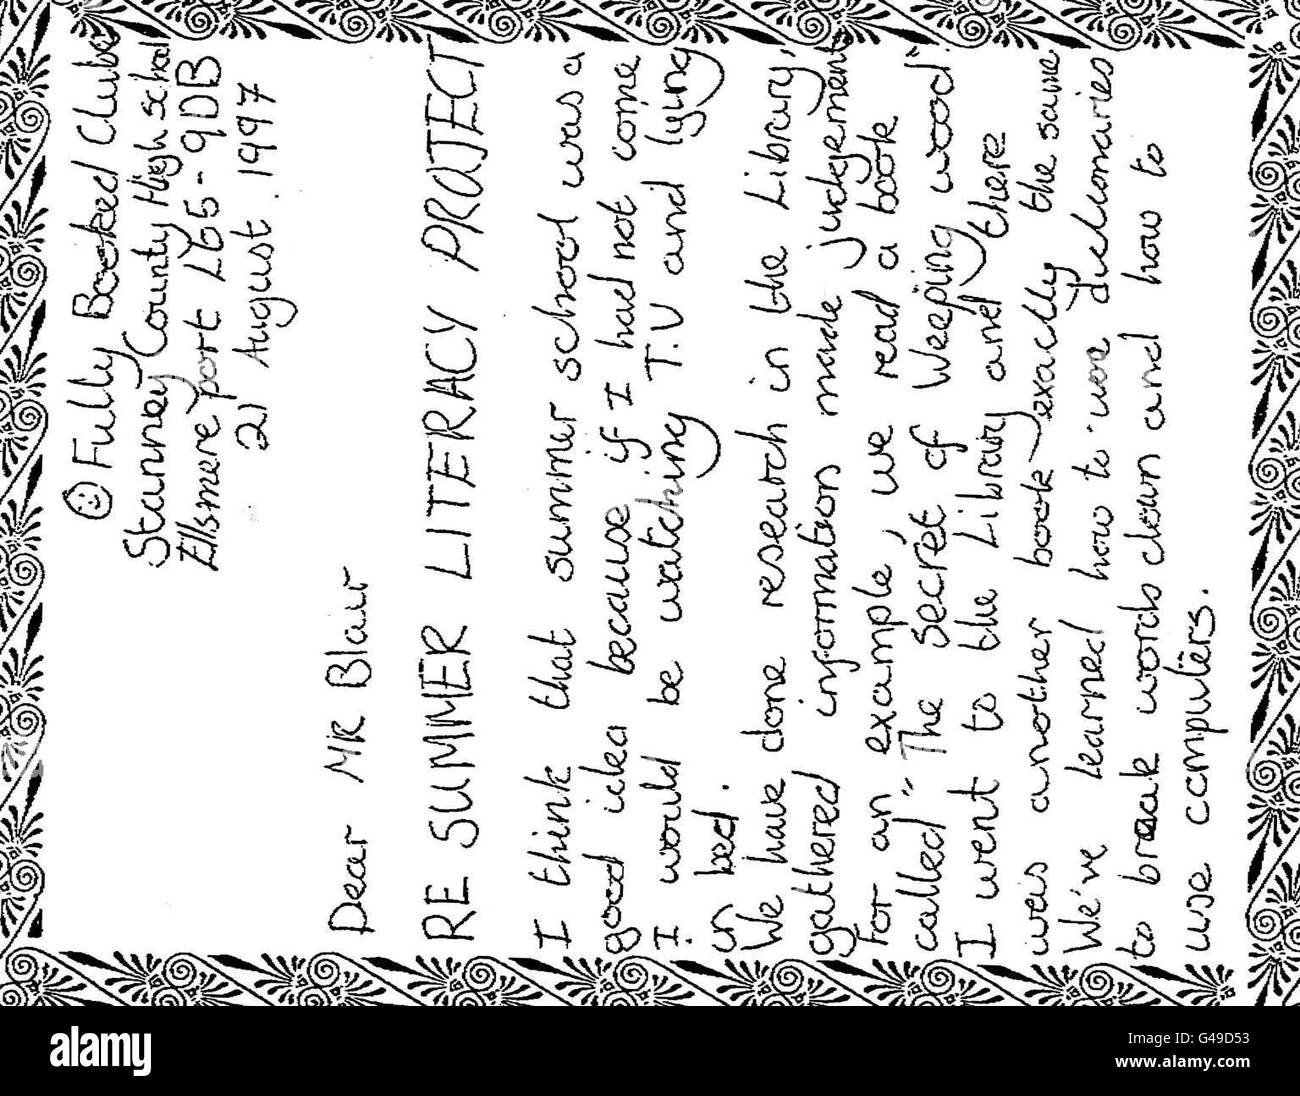 Fully Booked Club
Stanney County High School
Ellsmere port L65-9DB
21 August. 1997
Dear MR Blair
RE SUMMER LITERACY PROJECT
I think that summer school was a
good idea because if I had not come
I would be watching T.V and lying
in bed.
We have done research in the Library,
gathered information made judgements
For an example, we read a book
called "The secret of Weeping wood".
I went to the Library and there
was another book exactly the same
We've learned how to use dictionaries
to break words down and how to
use computers.
alamy
Image ID: G49D53
www.alamy.com